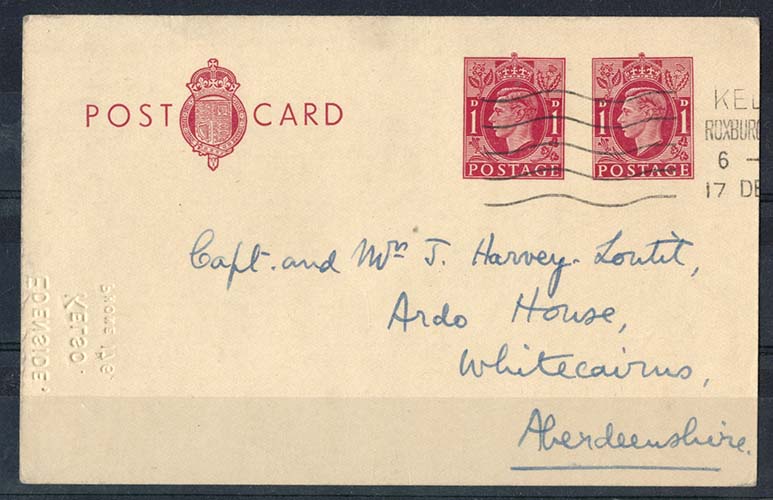 POST CARD
D 1 1 D
POSTAGE
D 1 1 D
POSTAGE
KEL
ROXBURG
6 -
17 DE
Capt. and Mrs J. Harvey-Loutit,
Ardo House,
Whitecairns,
Aberdeenshire.
EDENSIDE.
KELSO.